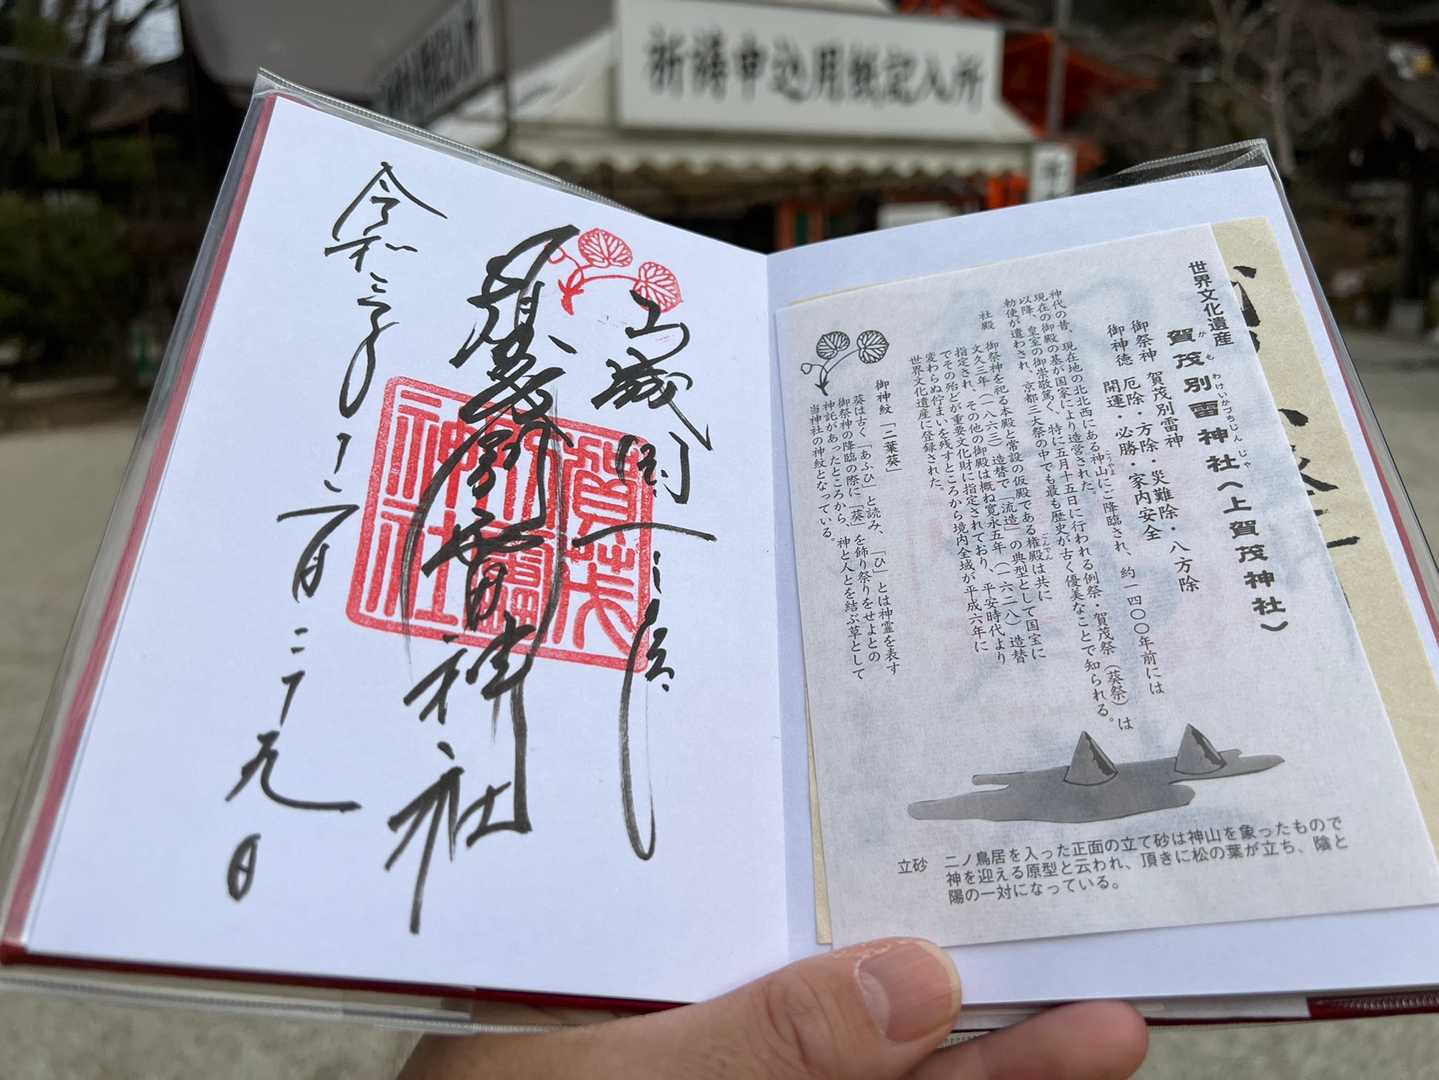 祈祷申込用紙記入所
山城国一之宮
賀茂別雷神社
賀茂別雷神社
令和
二月二十九日
世界文化遺産
賀茂別雷神社(上賀茂神社)
かもわけいかづちじんじゃ
御祭神 賀茂別雷神
御神徳 厄除・方除・災難除・八方除
開運・必勝・家内安全
神代の昔、現在地の北西にある神山にご降臨され、約一四〇〇年前には
こうやま
現在の御殿の基が国家により造営された。
以降、皇室の御崇敬篤く、特に五月十五日に行われる例祭・賀茂祭(葵祭)は
勅使が遣わされ、京都三大祭の中でも最も歴史が古く優美なことで知られる。
社殿 御祭神を祀る本殿と常設の仮殿である権殿は共に
ごんでん
文久三年(一八六三)造替で「流造」の典型として国宝に
指定され、その他の御殿は概ね寛永五年(一六二八)造替
でその殆どが重要文化財に指定されており、平安時代より
変わらぬ佇まいを残すところから境内全域が平成六年に
世界文化遺産に登録された。
御神紋「二葉葵」
葵は古く「あふひ」と読み、「ひ」とは神霊を表す
御祭神の降臨の際に「葵」を飾り祭りをせよとの
神託があったところから、神と人とを結ぶ草として
当神社の神紋となっている。
立砂 二ノ鳥居を入った正面の立て砂は神山を象ったもので
神を迎える原型と云われ、頂きに松の葉が立ち、陰と
陽の一対になっている。